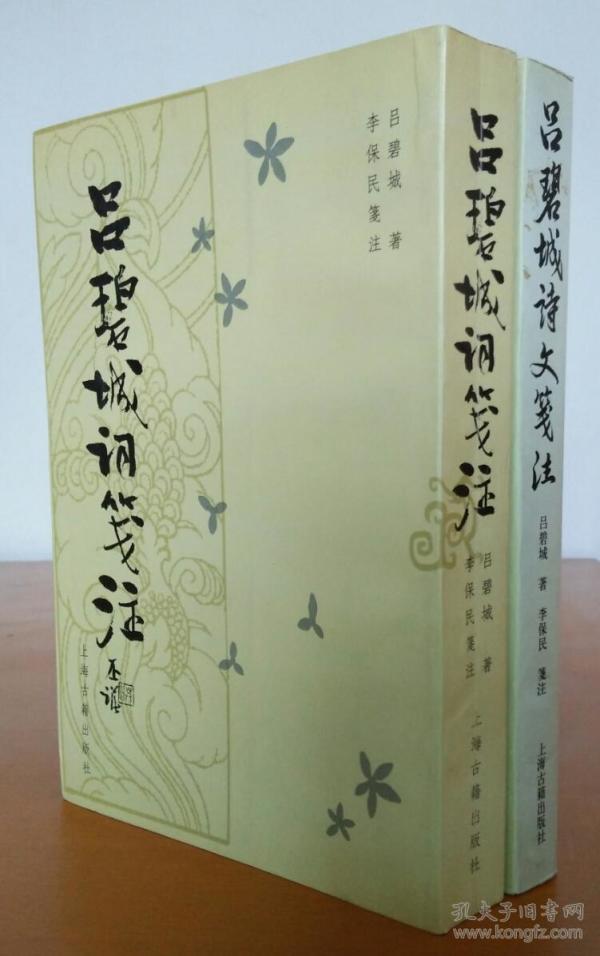 吕碧城 著
李保民 笺注
吕碧城词笺注
上海古籍出版社
吕碧城词笺注
吕碧城 著
李保民 笺注
上海古籍出版社
吕碧城诗文笺注
吕碧城 著 李保民 笺注
上海古籍出版社
孔夫子旧书网
www.kongfz.com